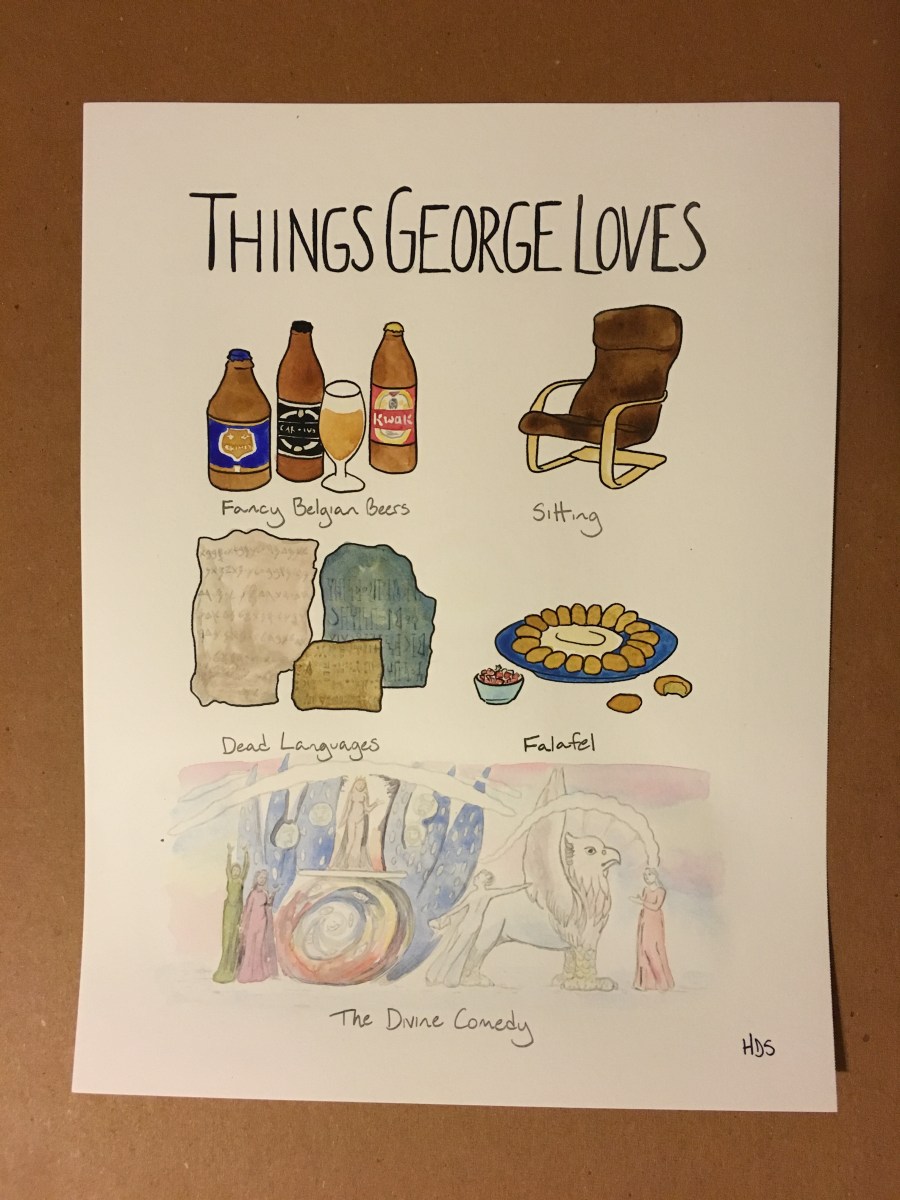 THINGS GEORGE LOVES
Kwak
Fancy Belgian Beers
Sitting
Dead Languages
Falafel
The Divine Comedy
HDS